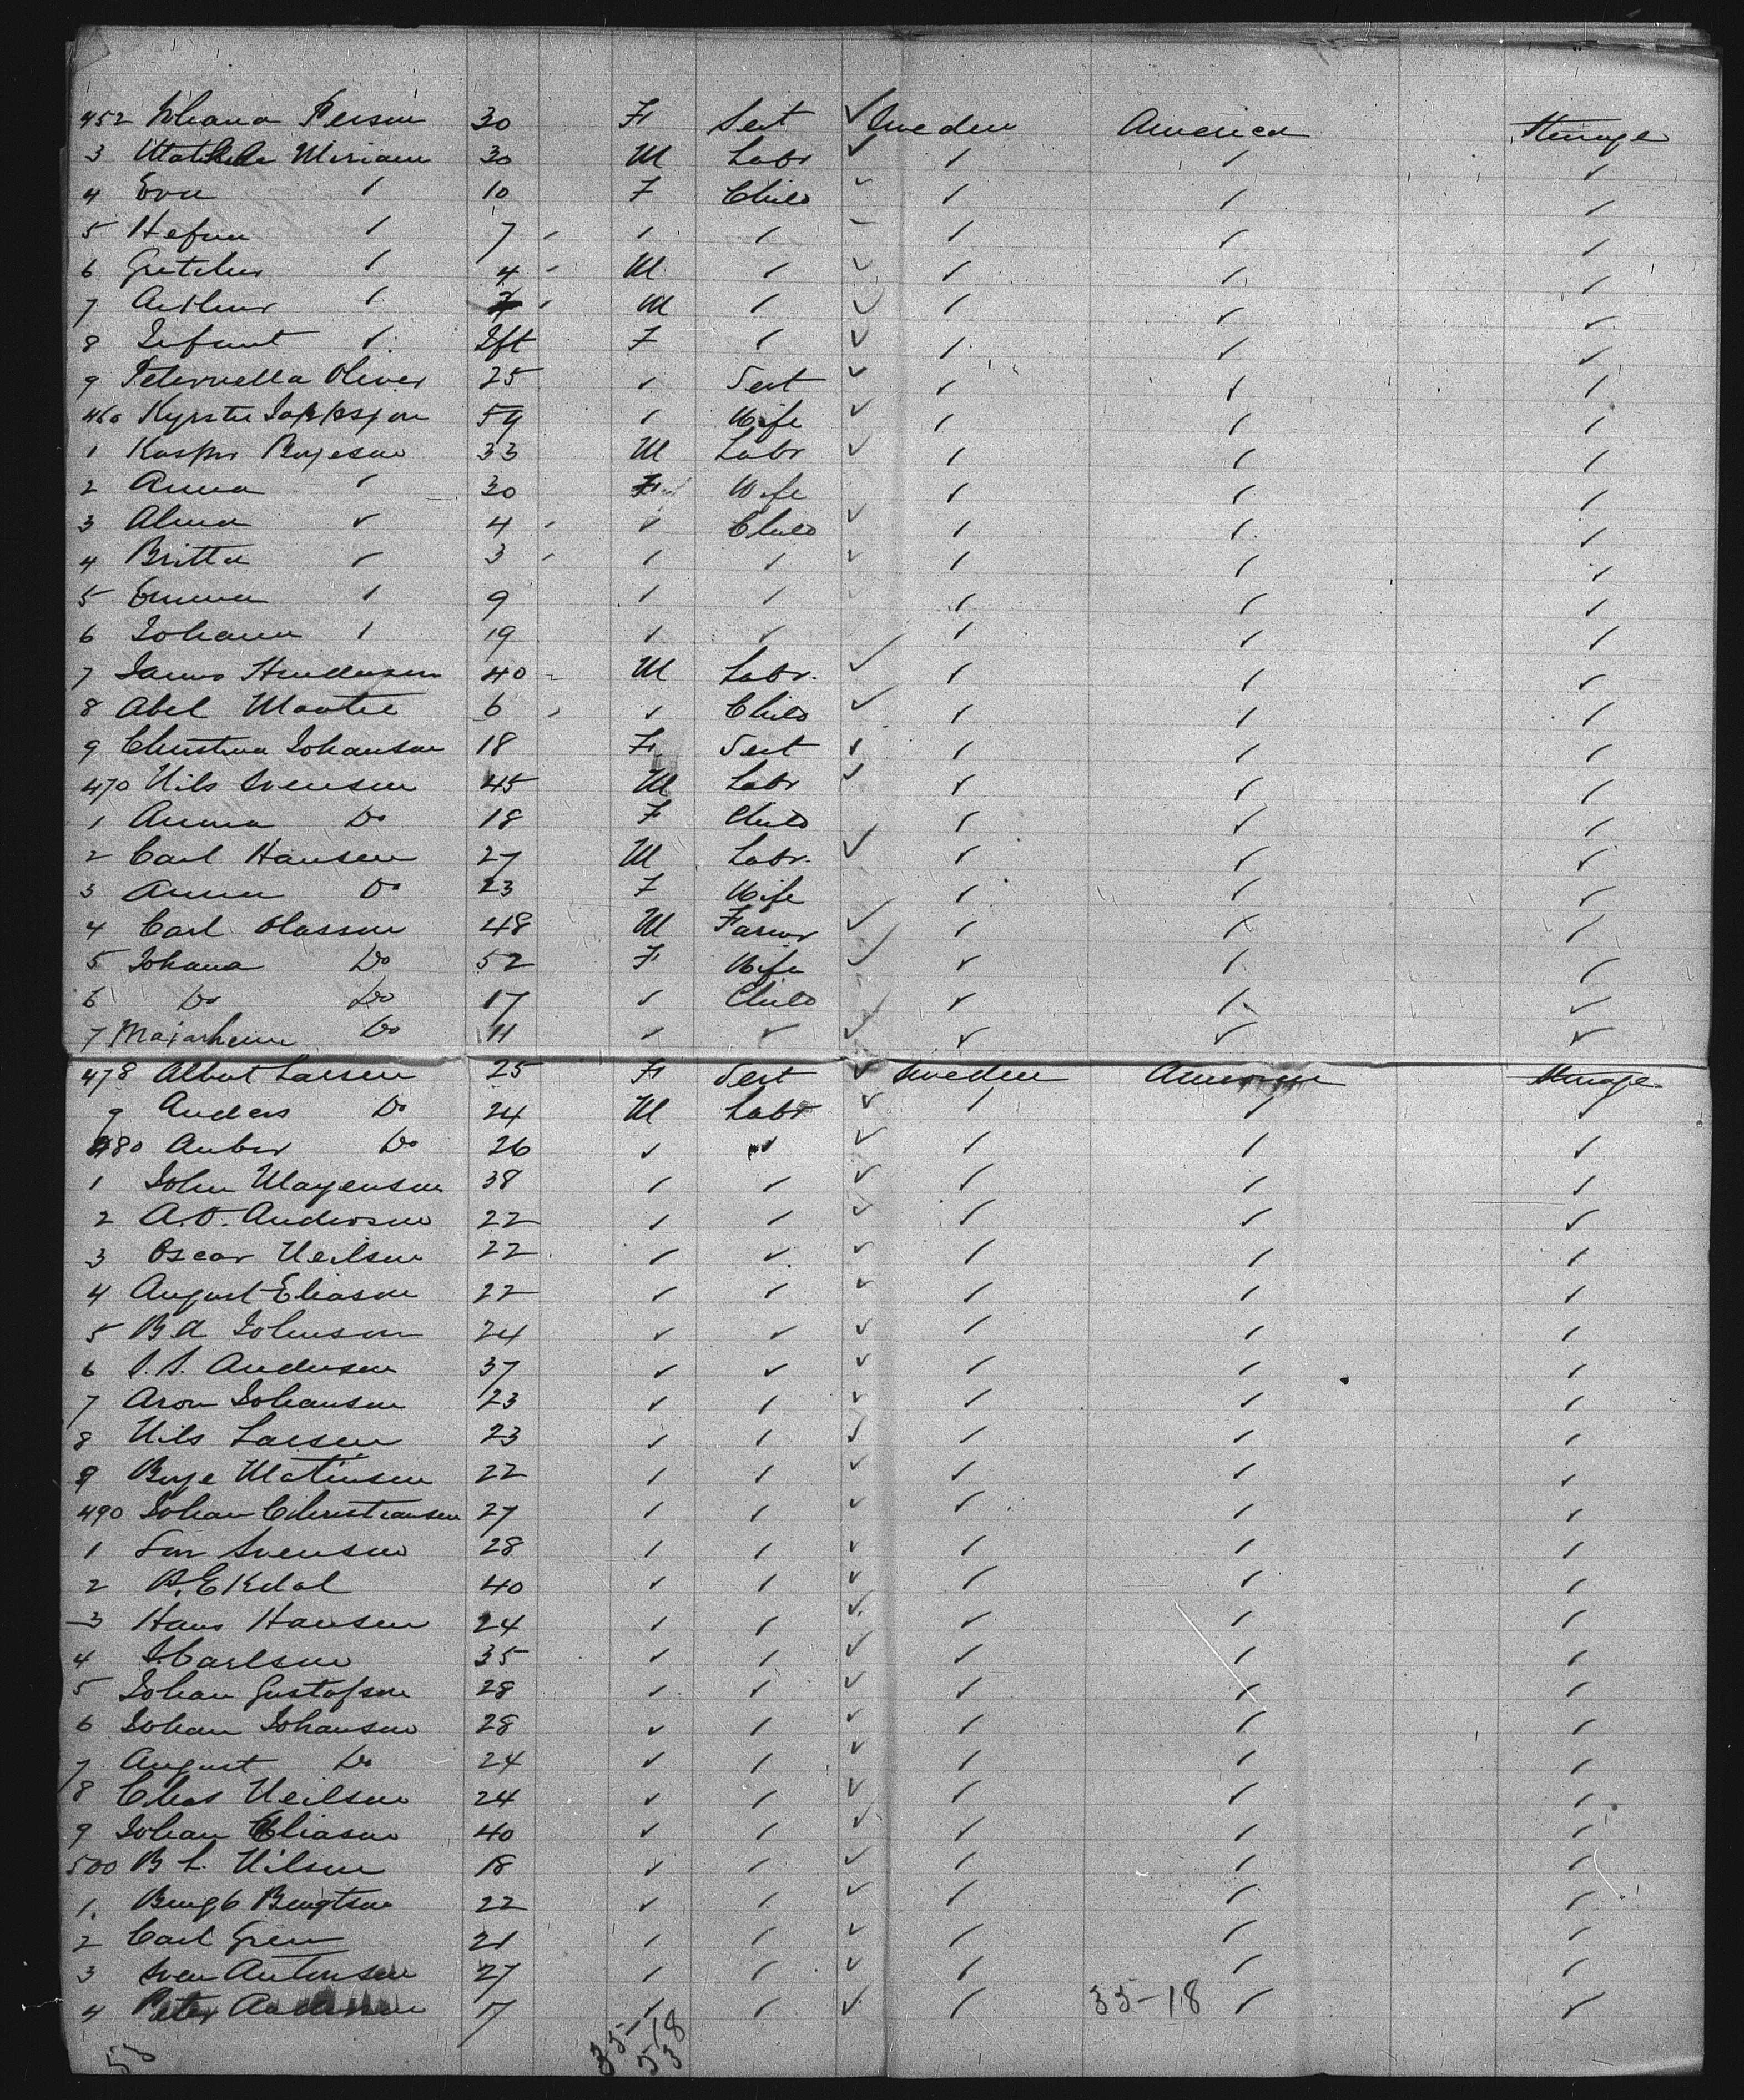 452 Johana Person 30 F Sert ✓ Sweden America Steerage
3 Matilda Miriam 30 M Labr ✓ ✓ ✓ ✓
4 Eva ✓ 10 F Child ✓ ✓ ✓ ✓
5 ✓ 7 ✓ ✓ ✓ ✓ ✓
6 ✓ 4 M ✓ ✓ ✓ ✓ ✓
7 Arthur ✓ M ✓ ✓ ✓ ✓ ✓
8 Infant ✓ Ift F ✓ ✓ ✓ ✓ ✓
9 Peternella Oliver 25 ✓ Sert ✓ ✓ ✓ ✓
460 59 ✓ Wife ✓ ✓ ✓ ✓
1 Kasper Borjeson 33 M Labr ✓ ✓ ✓ ✓
2 Anna ✓ 30 F Wife ✓ ✓ ✓
3 Alma ✓ 4 ✓ Child ✓ ✓ ✓ ✓
4 Britta ✓ 3 ✓ ✓ ✓ ✓ ✓ ✓
5 Emma ✓ 9 ✓ ✓ ✓ ✓ ✓
6 Johann ✓ 19 ✓ ✓ ✓ ✓ ✓
7 James Henderson 40 M Labr. ✓ ✓ ✓ ✓
8 Abel 6 ✓ Child ✓ ✓ ✓ ✓
9 Christina Johanson 18 F Sert ✓ ✓ ✓ ✓
470 Nils Svensen 45 M Labr ✓ ✓ ✓ ✓
1 Anna Do 18 F Child ✓ ✓ ✓
2 Carl Hansen 27 M Labr. ✓ ✓ ✓ ✓
3 Anna Do 23 F Wife ✓ ✓ ✓
4 Carl Olasson 48 M Farmr ✓ ✓ ✓ ✓
5 Johana Do 52 F Wife ✓ ✓ ✓ ✓
6 Do Do 17 ✓ Child ✓ ✓ ✓ ✓
7 Do 11 ✓ ✓ ✓ ✓ ✓ ✓
478 Albert Larsen 25 F Sert ✓ Sweden America Steerage
9 Anders Do 24 M Labr ✓ ✓ ✓ ✓
480 Do 26 ✓ ✓ ✓ ✓ ✓ ✓
1 John Mayenson 38 ✓ ✓ ✓ ✓ ✓ ✓
2 A.O. Anderson 22 ✓ ✓ ✓ ✓ ✓ ✓
3 Oscar Neilson 22 ✓ ✓ ✓ ✓ ✓ ✓
4 August Eliason 22 ✓ ✓ ✓ ✓ ✓ ✓
5 B A Johnson 24 ✓ ✓ ✓ ✓ ✓ ✓
6 Andersen 37 ✓ ✓ ✓ ✓ ✓ ✓
7 Aron Johansen 23 ✓ ✓ ✓ ✓ ✓ ✓
8 Nils Larsen 23 ✓ ✓ ✓ ✓ ✓ ✓
9 Borje Matinsen 22 ✓ ✓ ✓ ✓ ✓ ✓
490 Johan Christiansen 27 ✓ ✓ ✓ ✓ ✓ ✓
1 Svenson 28 ✓ ✓ ✓ ✓ ✓ ✓
2 B. Ekdal 40 ✓ ✓ ✓ ✓ ✓ ✓
3 Hans Hansen 24 ✓ ✓ ✓ ✓ ✓ ✓
4 J Carlson 35 ✓ ✓ ✓ ✓ ✓ ✓
5 Johan Gustafson 28 ✓ ✓ ✓ ✓ ✓ ✓
6 Johan Johanson 28 ✓ ✓ ✓ ✓ ✓ ✓
7 August Do 24 ✓ ✓ ✓ ✓ ✓ ✓
8 Chas Neilson 24 ✓ ✓ ✓ ✓ ✓ ✓
9 Johan Eliason 40 ✓ ✓ ✓ ✓ ✓ ✓
500 B L. Nilson 18 ✓ ✓ ✓ ✓ ✓ ✓
1. Bengt Bengtson 22 ✓ ✓ ✓ ✓ ✓ ✓
2 Carl Gren 21 ✓ ✓ ✓ ✓ ✓ ✓
3 Sven Antonsen 27 ✓ ✓ ✓ ✓ ✓ ✓
4 Peter Anderson 17 ✓ ✓ ✓ ✓ 35-18 ✓ ✓
53 35-18
53